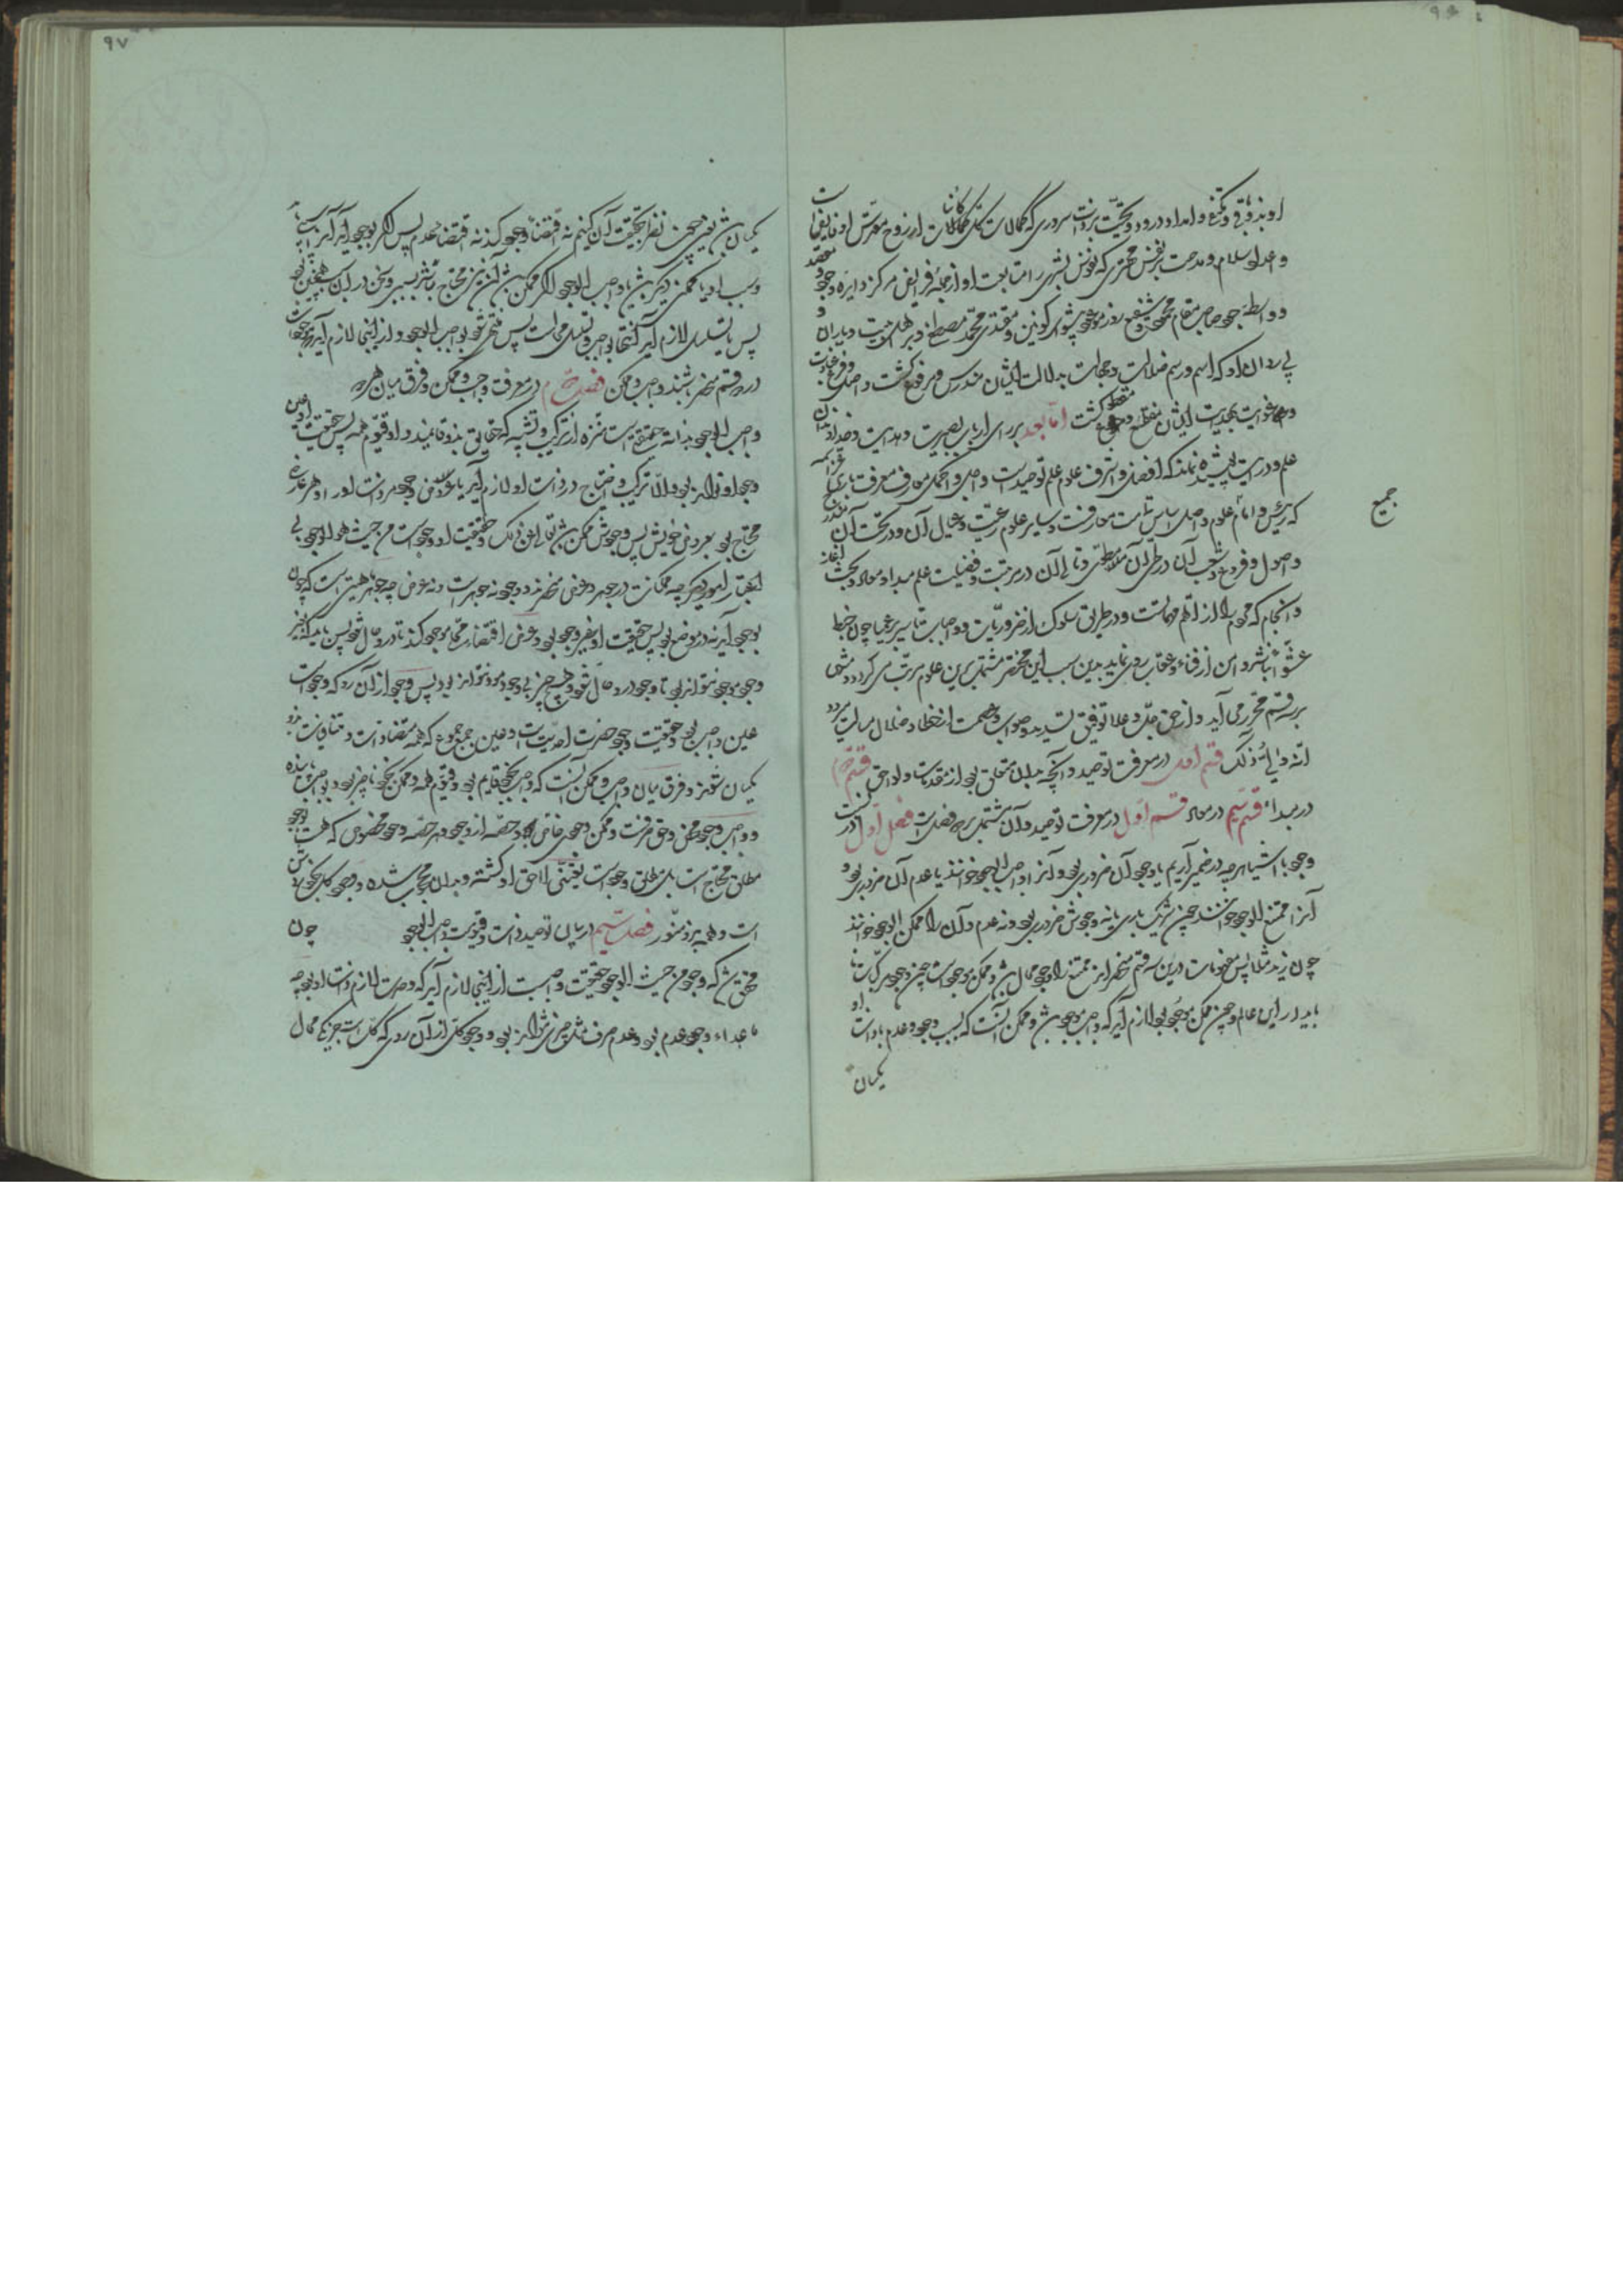 او بذوق و تحیت بر ذات سروری که کمالات کل کائنات از روح مقدس او فایض است
و اعداد سلام و مدحت بر نفس محترمی که نفوس بشری را متابعت او از جمله فرایض مرکز دایره وجود
و واسطه جود صاحب مقام محمود و شفیع روز موعود پیشوای کونین و مقتدی محمد مصطفی و بر اهل بیت و یاران
پی روان او که اسم و رسم ضلالت و جهالت بدلالت ایشان مندرس و مرفوع گشت و اصل و فرع غباوت
و غوایت بهدایت ایشان منقطع و مقطوع گشت اما بعد بر رای ارباب بصیرت و هدایت و خداوندان
علم و درایت پوشیده نماند که افضل و اشرف علوم علم توحید است و اصل و اکمل معارف معرفت باری
که رئیس و امام علوم و اصل و اساس تمامت معارفست و سایر علوم رعیت و عیال آن و در تحت آن
جمیع
و اصول و فروع و شعب آن در طی آن منطوی و تالی آن در مرتبت و فضیلت علم مبدا و معاد و بحث آغاز
و انجام که عموم را از اهم مهماتست و در طریق سلوک از ضروریات و واجبات تا سیر عمیا چون خبط
عشوا نباشد و امن از فناء و عقاب روی نماید بدین سبب این مختصر مشتمل برین علوم مرتب می گردد و مبتنی
بر سه قسم محرر می آید و از حق جل و علا توفیق تسدید و صواب و عصمت از خطا و ضلال مسالت میرود
انه ولی ذلک قسم اول در معرفت توحید و آنچه بدان متعلق بود از مقدمات و لواحق قسم دوم
در مبداء قسم سیم در معاد قسم اول در معرفت توحید و آن مشتمل بر سه فصلست فصل اول در نسبت
وجود با اشیا هر چه در ضمیر آریم یا وجود آن ضروری بود و آنرا واجب الوجود خوانند یا عدم آن ضروری بود و
آنرا ممتنع الوجود خوانند چون شریک باری یا نه وجودش ضروری بود و نه عدم و آن را ممکن الوجود خوانند
چون زید مثلا پس مفهومات درین سه قسم منحصراند ممتنع را وجود محال باشد و ممکن موجود است چون وجود مرکبات تا
باید در این عالم و چون ممکن موجود بود لازم آید که واجب موجود باشد و ممکن آنست که نسبت وجود و عدم با ذات او
یکسان
یکسان باشد یعنی چون نظر بحقیقت آن کنیم نه اقتضاء وجود کند نه اقتضاء عدم پس اگر بوجود آید
و سبب او یا ممکن دیگر باشد یا واجب الوجود اگر ممکن باشد آن نیز محتاج باشد بسببی و سخن در آن همچنین بود
پس یا تسلسل لازم آید یا انتها بواجب و تسلسل محالست پس منتهی شود بواجب الوجود و ازینجا لازم آید که موجودات
در دو قسم منحصر باشند واجب و ممکن فصل دوم در معرفت واجب و ممکن و فرق میان هر دو
واجب الوجود بذاته حقیقتی است منزه از ترکیب و تشبیه که حقایق بذو قایمند و او قیوم همه پس حقیقت او عین
وجود او تواند بود و الا ترکیب و احتیاج در ذات او لازم آید یا عروض وجود مر ذات او را و هر عارض
محتاج بود بمعروض خویش پس وجودش ممکن باشد تعالی عن ذلک و حقیقت او وجودست من حیث هو الوجود بی
اعتبار امور دیگر چه ممکنات در جوهر و عرض منحصرند و وجود نه جوهرست و نه عرض چه جوهر ماهیتی است که چون
بوجود آید نه در موضوع بود پس حقیقت او غیر وجود بود و عرض اقتضاء محل موجود کند تا درو حال شود پس باید که غیر
وجود موجود نتواند بود تا وجود درو حال شود و هیچ چیز بی وجود موجود نتواند بود پس وجود از آن رو که وجودست
عین واجب بود و حقیقت وجود حضرت احدیت است و عین جمع جموع که همه متضادات و متنافیات درو
یکسان شوند و فرق میان واجب و ممکن آنست که واجب بخود قایم بود و قیوم همه و ممکن بخود ناچیز بود و بواجب پاینده
و واجب وجود محض و حق صرفست و ممکن وجود خاص و حصه از وجود و هر حصه و وجود مخصوص که هست بوجود
مطلق محتاج است بلک مطلق وجودست بتعینی لاحق او گشته و بدان محجوب شده و وجود کل بخود باقی
است و همه بدو منور فصل سیم در بیان توحید ذات و قیومیت واجب الوجود چون
محقق شد که وجود من حیث الوجود حقیقت واجبست ازینجا لازم آید که وحدت لازم ذات او بود چه
ماعداء وجود عدم بود و عدم صرف مثل چیزی نتواند بود و وجود کل از آن روی که کل است جز یکی محال